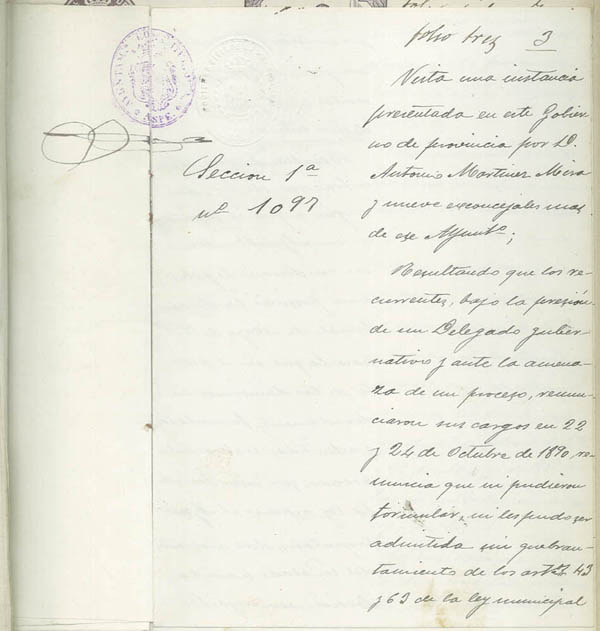 folio tres 3
Vista una instancia
presentada en este Gobier-
no de provincia por D.
Antonio Martinez Mira
y nueve exconcejales mas
de ese Ayuntº;
Seccion 1ª
nº 1097
Resultando que los re-
currentes, bajo la presión
de un Delegado guber-
nativo y ante la amena-
za de un proceso, renun-
ciaron sus cargos en 22
y 24 de Octubre de 1890, re-
nuncia que ni pudieron
formular, ni les pudo ser
admitida sin quebran-
tamiento de los artºs 43
y 63 de la ley municipal
ASPE